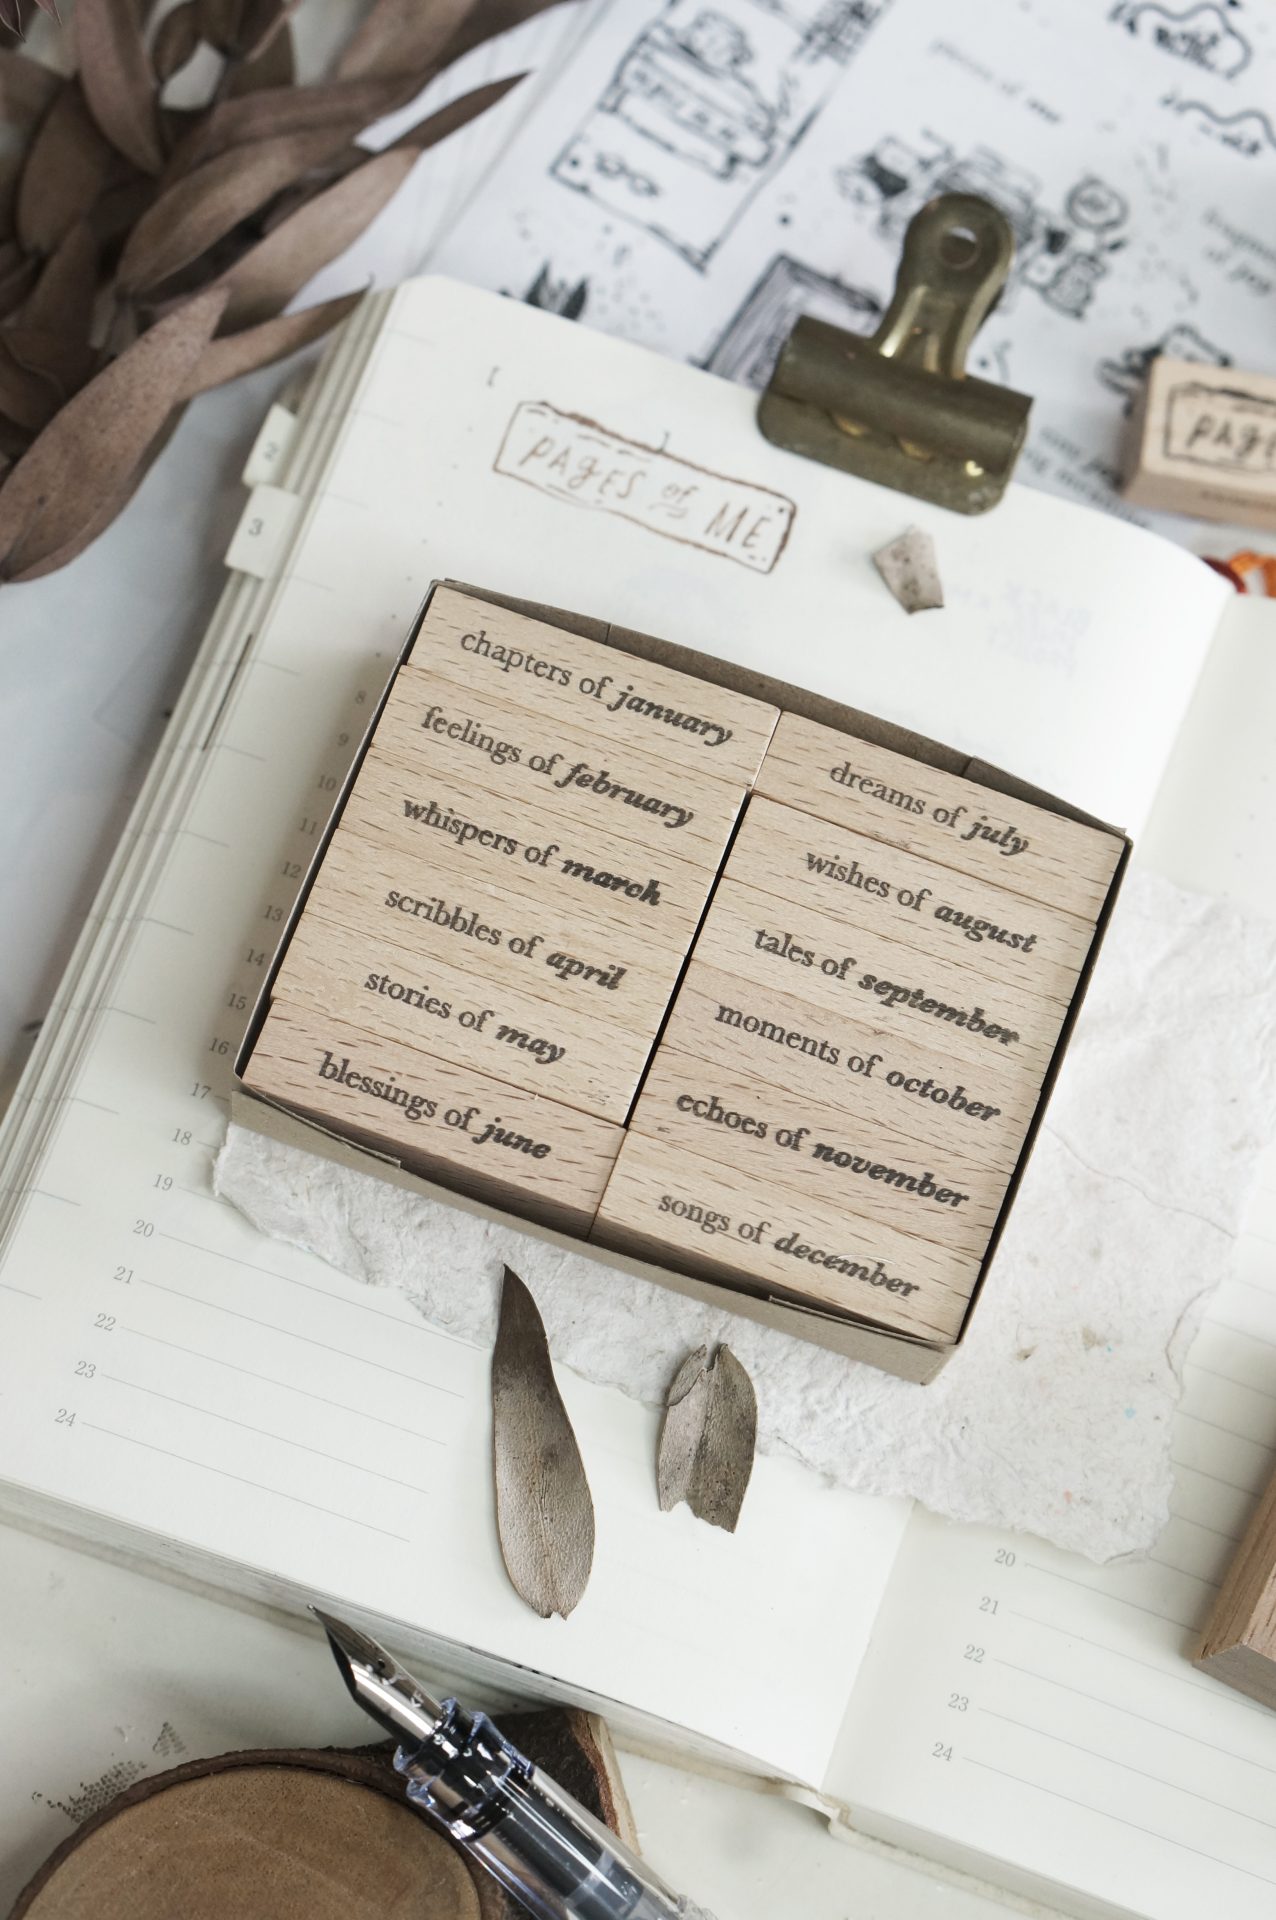 PAGES of ME
PAGE
2
3
chapters of january
feelings of february
whispers of march
scribbles of april
stories of may
blessings of june
dreams of july
wishes of august
tales of september
moments of october
echoes of november
songs of december
8
9
10
11
12
13
14
15
16
17
18
19
20
21
22
23
24
20
21
22
23
24